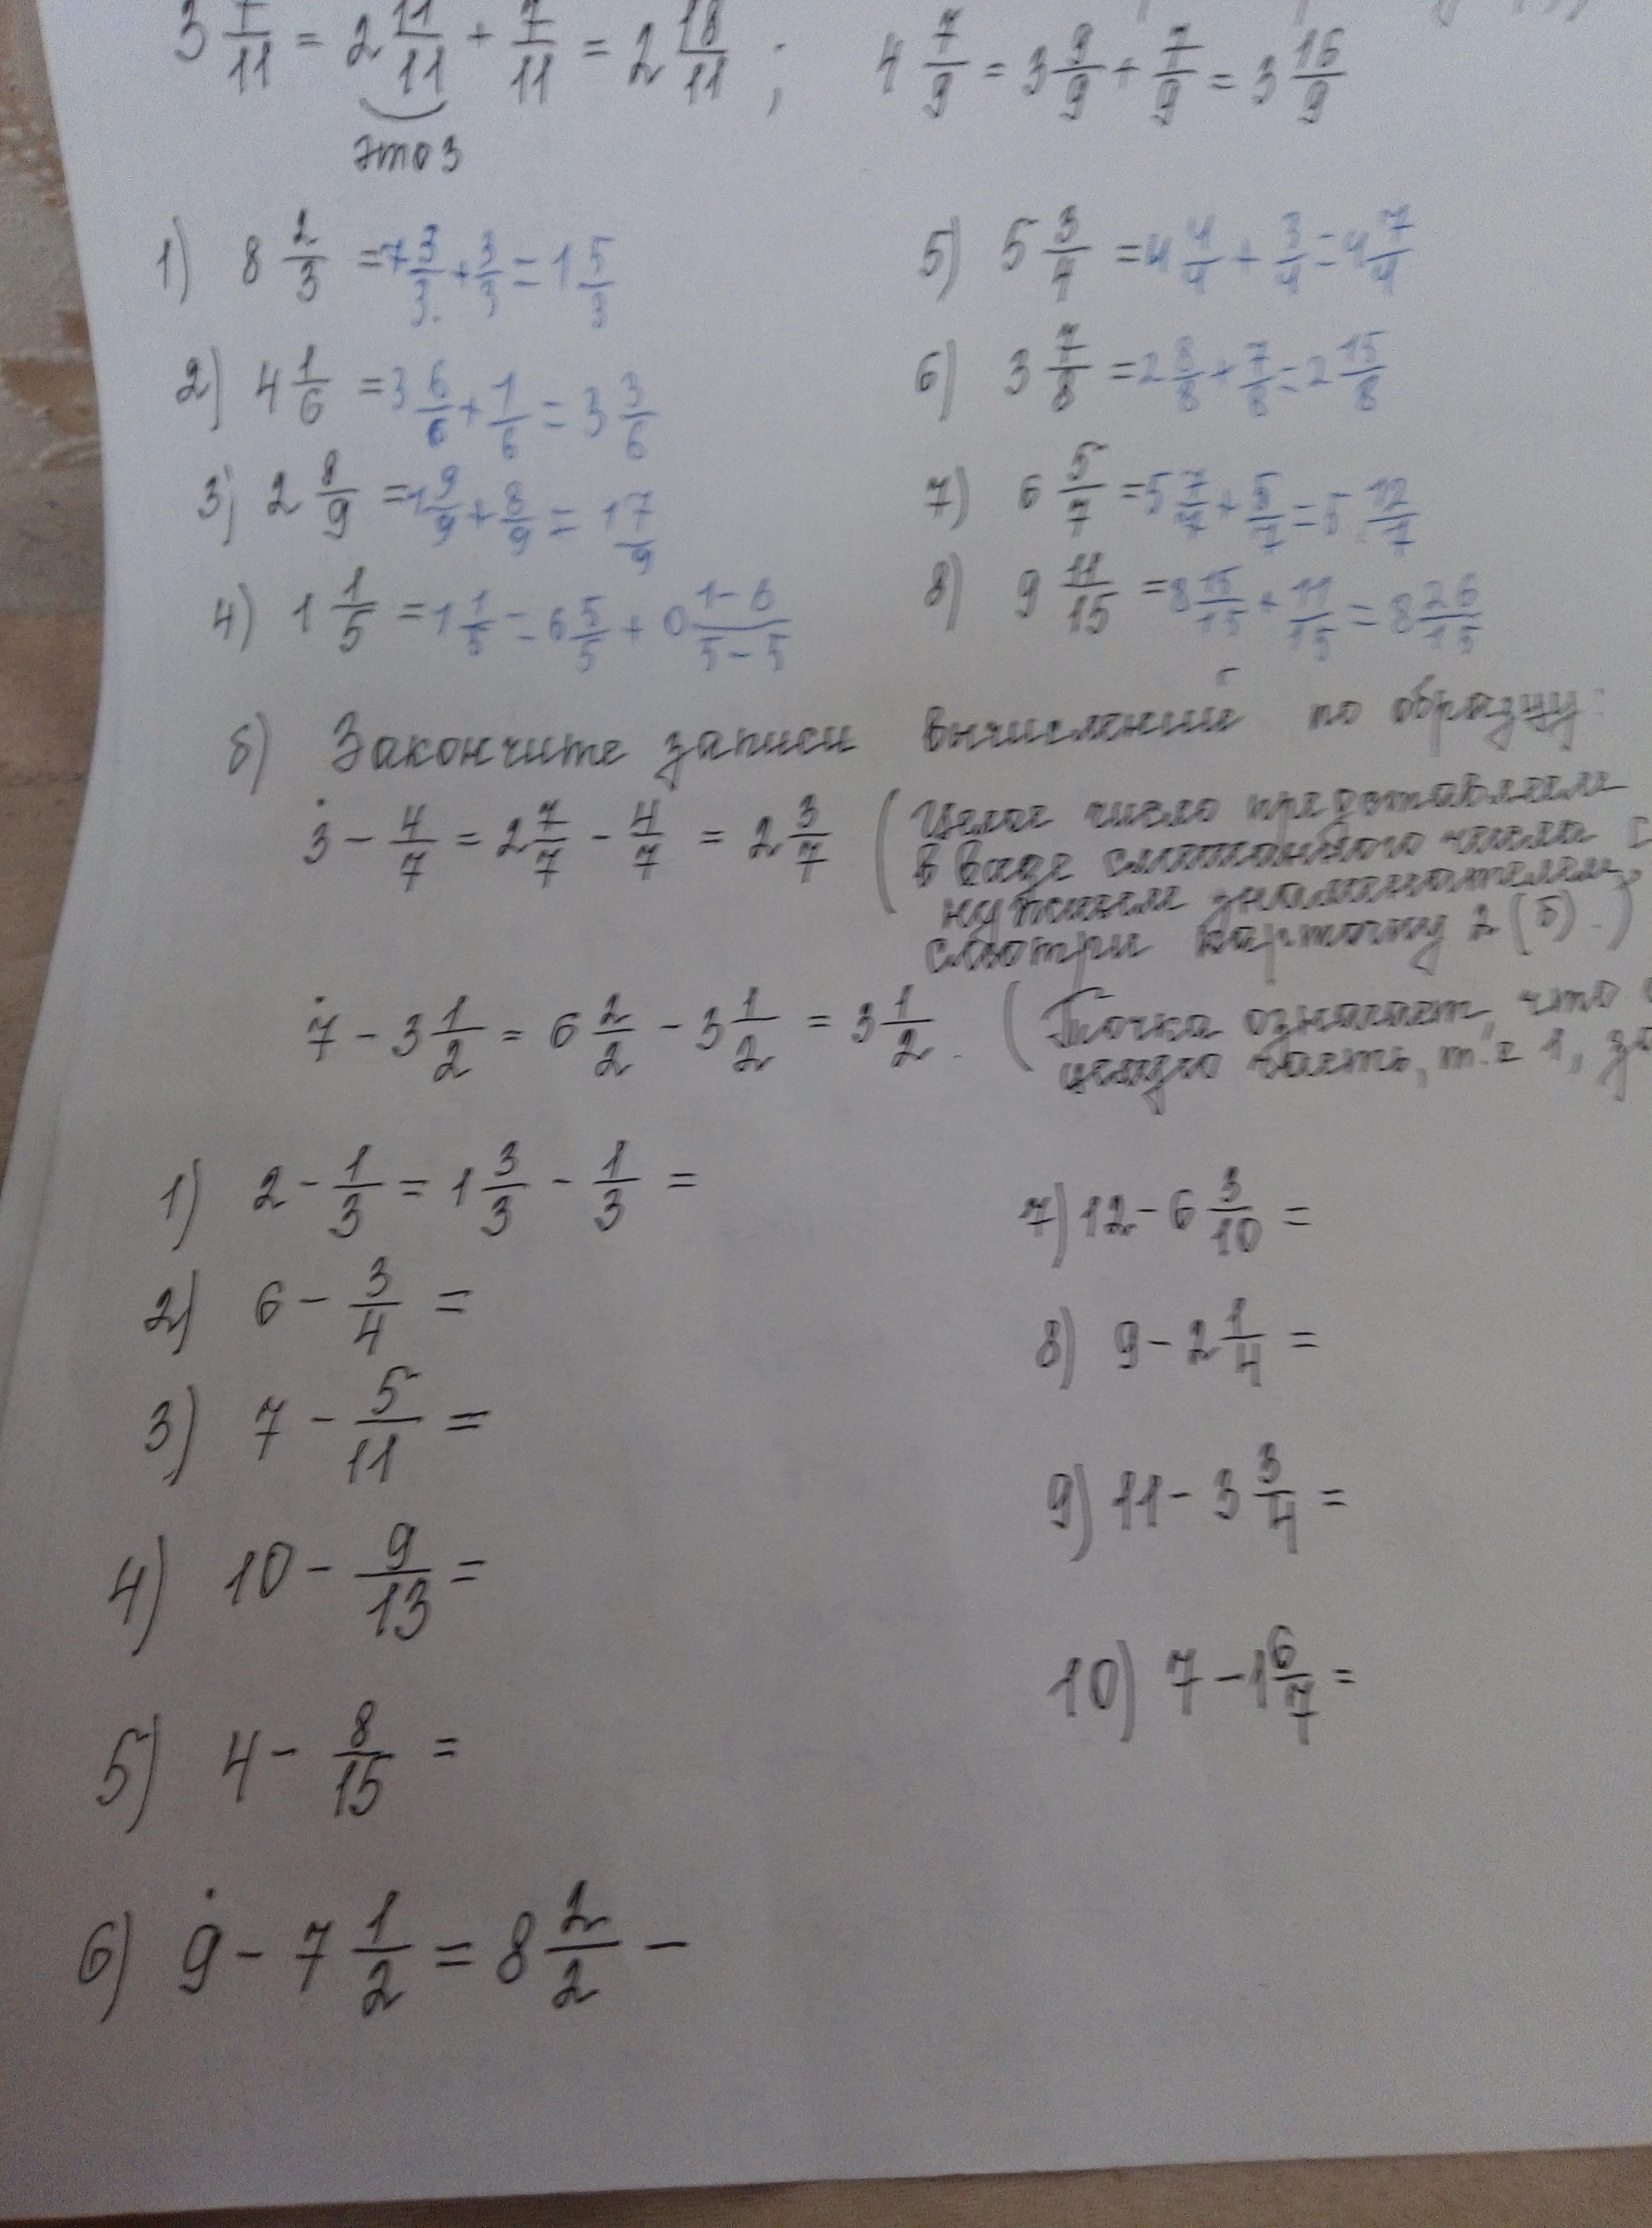 3 7/11 = 2 11/11 + 7/11 = 2 18/11 ; 4 7/9 = 3 9/9 + 7/9 = 3 16/9
это 3
1) 8 2/3 = 7 3/3 + 3/3 = 1 5/3
2) 4 1/6 = 3 6/6 + 1/6 = 3 3/6
3) 2 8/9 = 1 9/9 + 8/9 = 17/9
4) 1 1/5 = 1 1/5 = 6 5/5 + 0 1-6/5-5
5) 5 3/4 = 4 4/4 + 3/4 = 4 7/4
6) 3 7/8 = 2 8/8 + 7/8 = 2 15/8
7) 6 5/7 = 5 7/7 + 5/7 = 5 12/7
8) 9 11/15 = 8 15/15 + 11/15 = 8 26/15
б) Закончите записи вычислений по образцу:
3 - 4/7 = 2 7/7 - 4/7 = 2 3/7 (Целое число представляем
в виде смешанного числа с
нужным знаменателем,
смотри карточку 2 (б).)
7 - 3 1/2 = 6 2/2 - 3 1/2 = 3 1/2. (Точка означает, что
целую часть, т.е 1, за
1) 2 - 1/3 = 1 3/3 - 1/3 =
2) 6 - 3/4 =
3) 7 - 5/11 =
4) 10 - 9/13 =
5) 4 - 8/15 =
6) 9 - 7 1/2 = 8 2/2 -
7) 12 - 6 3/10 =
8) 9 - 2 1/4 =
9) 11 - 3 3/4 =
10) 7 - 1 6/7 =